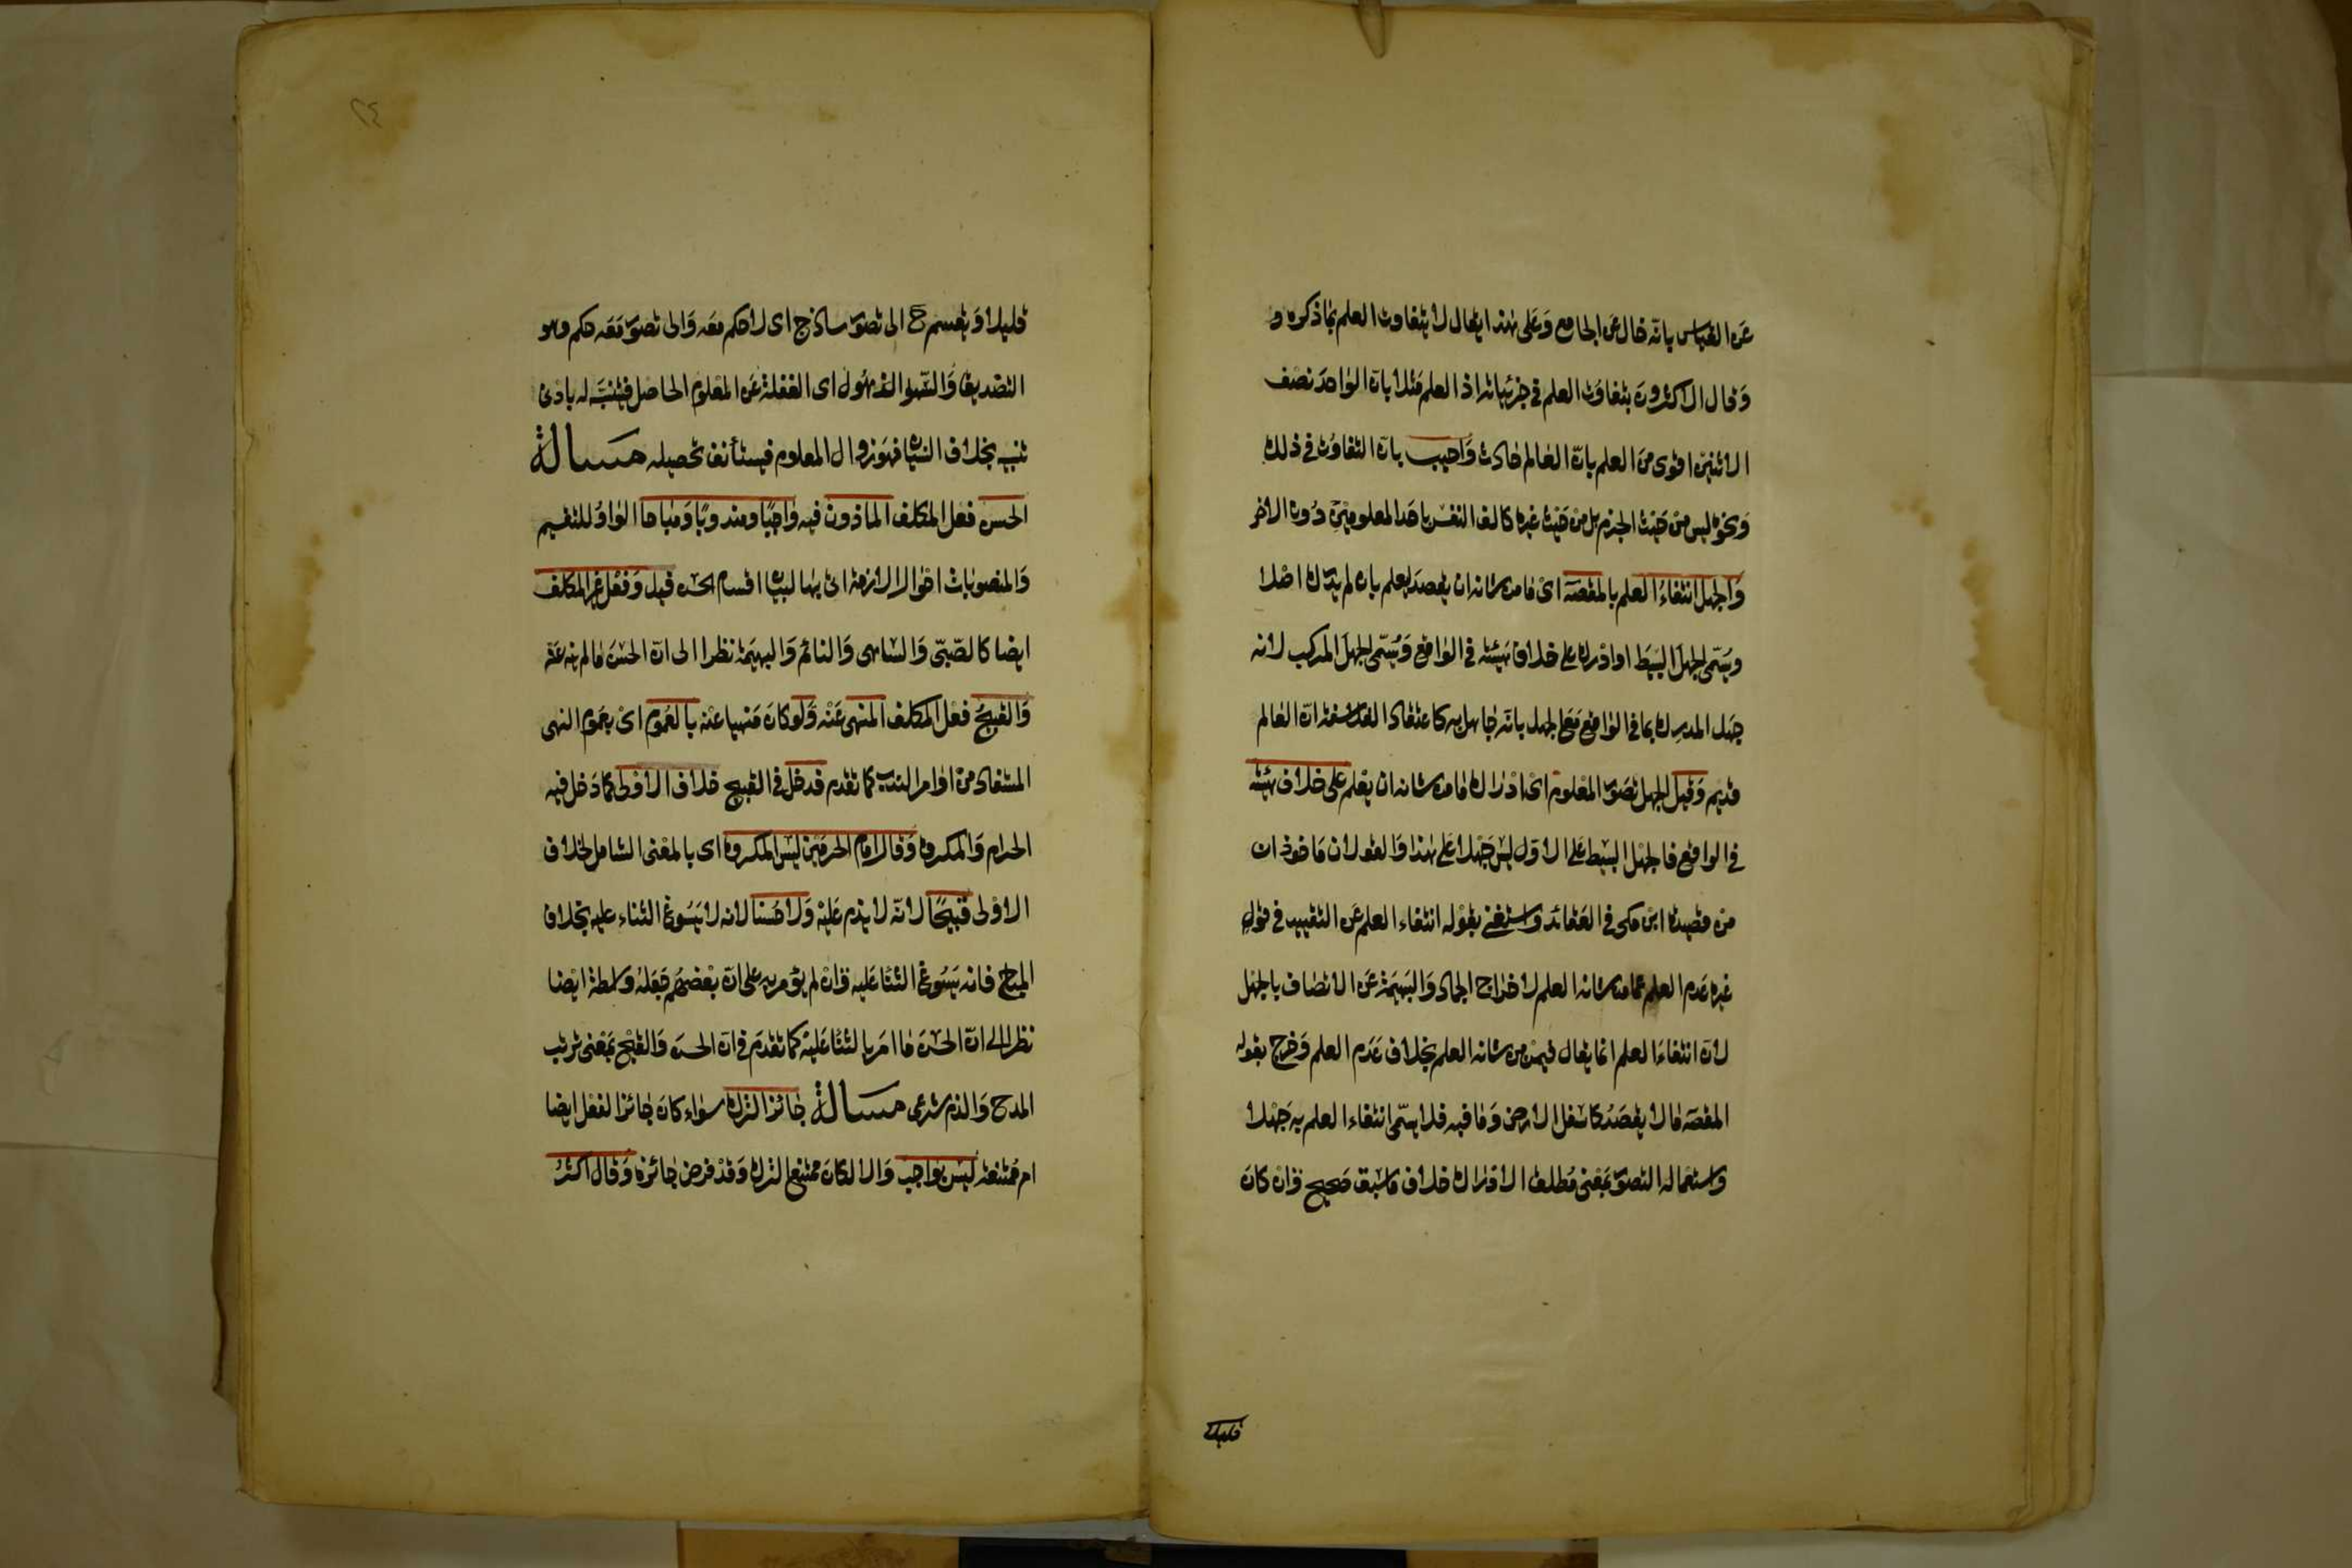 عن القياس بانه خال عن الجامع وعلى هذا يقال لا يتفاوت العلم بما ذكره و
وقال الاكثرون بتفاوت العلم في جزئياته اذ العلم مثلا بان الواحد نصف
الاثنين اقوى من العلم بان العالم حادث واجيب بان التفاوت في ذلك
ونحوه ليس من حيث الجزم بل من حيث غيره كالف النفس باحد المعلومين دون الاخر
والجهل انتفاء العلم بالمقصود اى ما من شانه ان يقصد ليعلم بان لم يدرك اصلا
ويسمى الجهل البسيط او ادرك على خلاف هيئته في الواقع ويسمى الجهل المركب لانه
جهل المدرك بما في الواقع مع الجهل بانه جاهل به كاعتقاد الفلاسفة ان العالم
قديم وقيل الجهل تصور المعلوم اى ادراك ما من شانه ان يعلم على خلاف هيئته
في الواقع فالجهل البسيط على الاول ليس جهلا على هذا والقولان ماخوذان
من قصيدة ابن مكى في العقائد واستغنى بقوله انتفاء العلم عن التقييد في قول
غيره عدم العلم عما من شانه العلم لاخراج الجماد والبهيمة عن الاتصاف بالجهل
لان انتفاء العلم انما يقال فيمن من شانه العلم بخلاف عدم العلم وخرج بقوله
المقصود ما لا يقصد كاسفل الارض وما فيه فلا يسمى انتفاء العلم به جهلا
واستعماله التصور بمعنى مطلق الادراك خلاف ما سبق صحيح وان كان
قليلا
٢٤
قليلا ويقسم ح الى تصور ساذج اى لا حكم معه والى تصور معه حكم وهو
التصديق والسهو الذهول اى الغفلة عن المعلوم الحاصل فيتنبه له بادنى
تنبيه بخلاف النسيان فهو زوال المعلوم فيستأنف تحصيله مسالة
الحسن فعل المكلف الماذون فيه واجبا ومندوبا ومباحا الواو للتقسيم
والمنصوبات احوال لازمة اتى بها لبيان اقسام الحسن قيل وفعل غير المكلف
ايضا كالصبى والساهى والنائم والبهيمة نظرا الى ان الحسن ما لم ينه عنه
والقبيح فعل المكلف المنهى عنه ولو كان منهيا عنه بالعموم اى بعموم النهى
المستفاد من اوامر الندب كما تقدم فدخل في القبيح خلاف الاولى كما دخل فيه
الحرام والمكروه وقال امام الحرمين ليس المكروه اى بالمعنى الشامل لخلاف
الاولى قبيحا لانه لا يذم عليه ولا حسنا لانه لا يسوغ الثناء عليه بخلاف
المباح فانه يسوغ الثنا عليه وان لم يؤمر به على ان بعضهم جعله واسطة ايضا
نظرا الى ان الحسن ما امر بالثنا عليه كما تقدم في ان الحسن والقبح بمعنى ترتب
المدح والذم شرعى مسالة جائز الترك سواء كان جائز الفعل ايضا
ام ممتنعه ليس بواجب والا لكان ممتنع الترك وقد فرض جائزه وقال اكثر